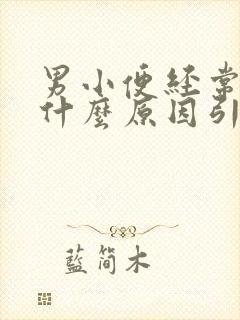 男小便经常
什麼原因引
藍简木